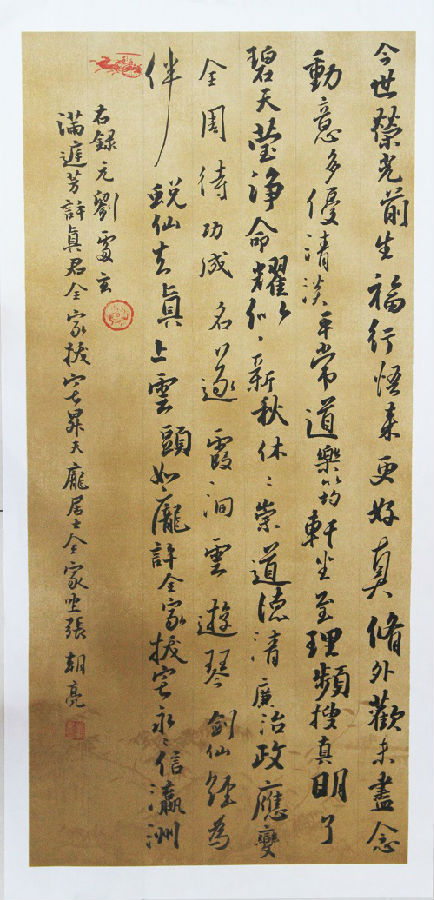 今世榮光前生福行悟来更好真脩外歡未盡念
動意多優清淡平常道樂筠軒坐至理頻搜真明了
碧天瑩淨命耀似新秋休々崇道德清廉治政應變
全周待功成名遂霞洞雲遊琴劍仙經為
伴蛻仙去真上雲頭如龐許全家拔宅永々信瀛洲
右錄元劉處玄
滿庭芳許真君全家拔宅昇天龐居士全家坐張 胡亮